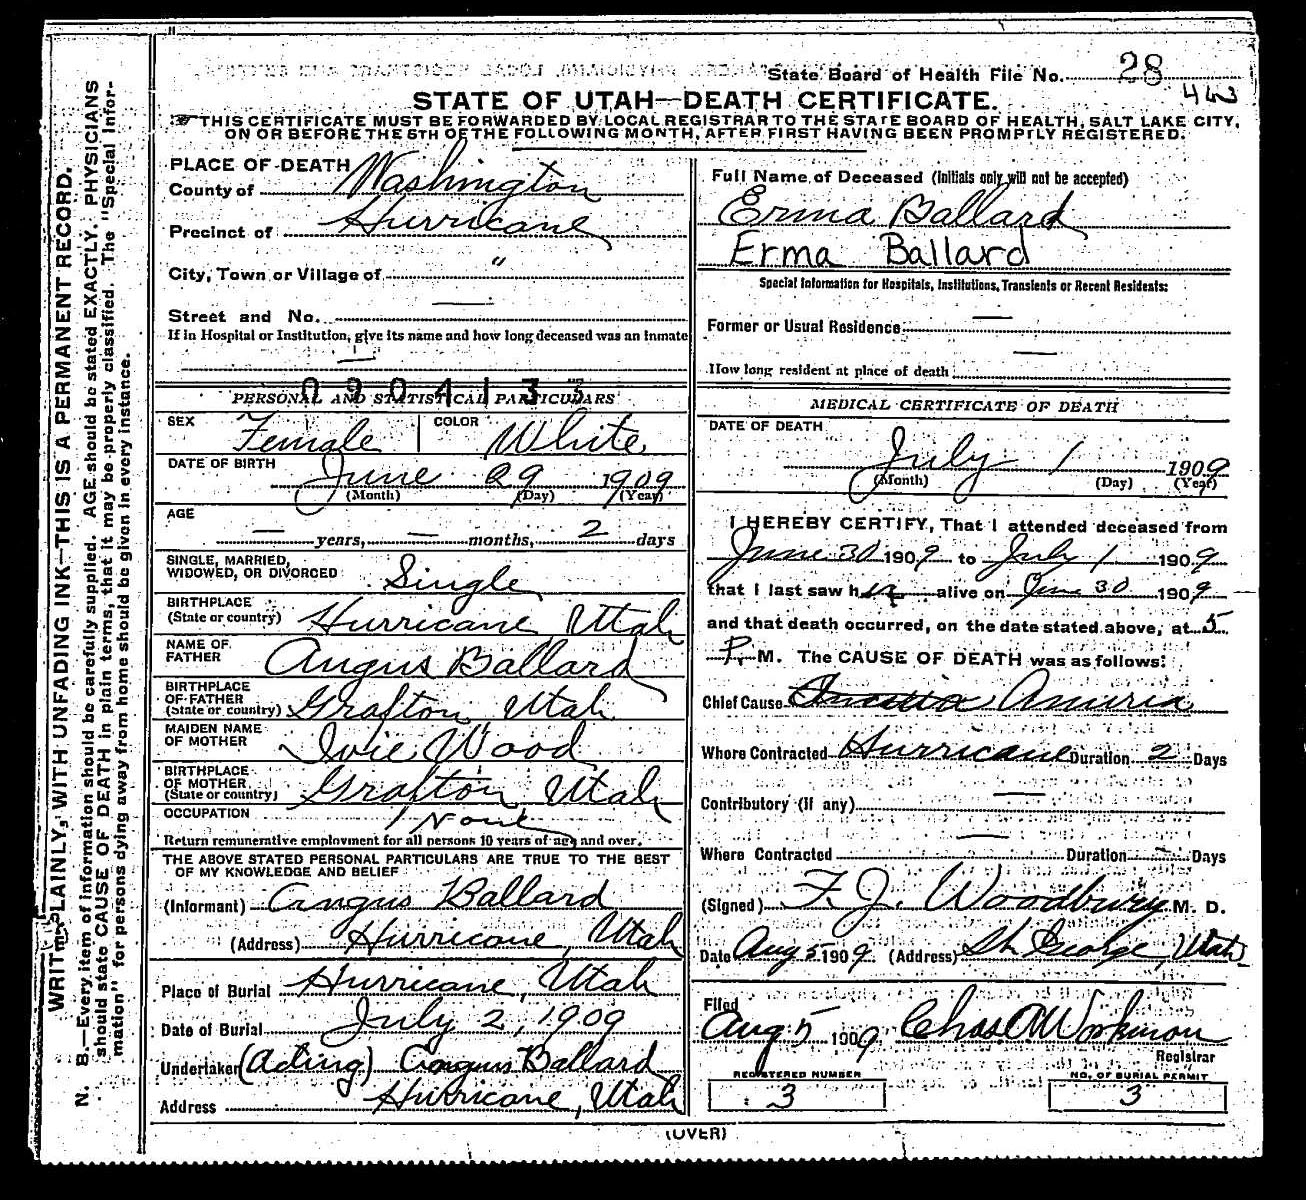 State Board of Health File No. 28
STATE OF UTAH—DEATH CERTIFICATE.
THIS CERTIFICATE MUST BE FORWARDED BY LOCAL REGISTRAR TO THE STATE BOARD OF HEALTH, SALT LAKE CITY,
ON OR BEFORE THE 5TH OF THE FOLLOWING MONTH, AFTER FIRST HAVING BEEN PROMPTLY REGISTERED.
WRITE PLAINLY, WITH UNFADING INK—THIS IS A PERMANENT RECORD.
N. B.—Every item of information should be carefully supplied. AGE should be stated EXACTLY. PHYSICIANS
should state CAUSE OF DEATH in plain terms, that it may be properly classified. The "Special Infor-
mation" for persons dying away from home should be given in every instance.
PLACE OF DEATH
County of Washington
Precinct of Hurricane
City, Town or Village of "
Street and No. —
If in Hospital or Institution, give its name and how long deceased was an inmate
—
0904133
PERSONAL AND STATISTICAL PARTICULARS
SEX Female COLOR White
DATE OF BIRTH June 29 1909
(Month) (Day) (Year)
AGE
— years, — months, 2 days
SINGLE, MARRIED,
WIDOWED, OR DIVORCED Single
BIRTHPLACE
(State or country) Hurricane Utah
NAME OF
FATHER Angus Ballard
BIRTHPLACE
OF FATHER
(State or country) Grafton Utah
MAIDEN NAME
OF MOTHER Ivie Wood
BIRTHPLACE
OF MOTHER
(State or country) Grafton, Utah
OCCUPATION None
Return remunerative employment for all persons 10 years of age and over.
THE ABOVE STATED PERSONAL PARTICULARS ARE TRUE TO THE BEST
OF MY KNOWLEDGE AND BELIEF
(Informant) Angus Ballard
(Address) Hurricane, Utah
Place of Burial Hurricane, Utah
Date of Burial July 2, 1909
Undertaker (Acting) Angus Ballard
Address Hurricane, Utah
Full Name of Deceased (Initials only will not be accepted)
Erma Ballard
Erma Ballard
Special Information for Hospitals, Institutions, Transients or Recent Residents:
Former or Usual Residence: —
How long resident at place of death —
MEDICAL CERTIFICATE OF DEATH
DATE OF DEATH
July 1 1909
(Month) (Day) (Year)
I HEREBY CERTIFY, That I attended deceased from
June 30 1909 to July 1 1909
that I last saw her alive on June 30 1909
and that death occurred, on the date stated above, at 5
P. M. The CAUSE OF DEATH was as follows:
Chief Cause
Where Contracted Hurricane Duration 2 Days
Contributory (if any) —
Where Contracted — Duration — Days
(Signed) F. J. Woodbury M. D.
Date Aug 5 1909. (Address) St George, Utah
Filed
Aug 5 1909 Chas. A Workman
Registrar
REGISTERED NUMBER
3
NO. OF BURIAL PERMIT
3
(OVER)